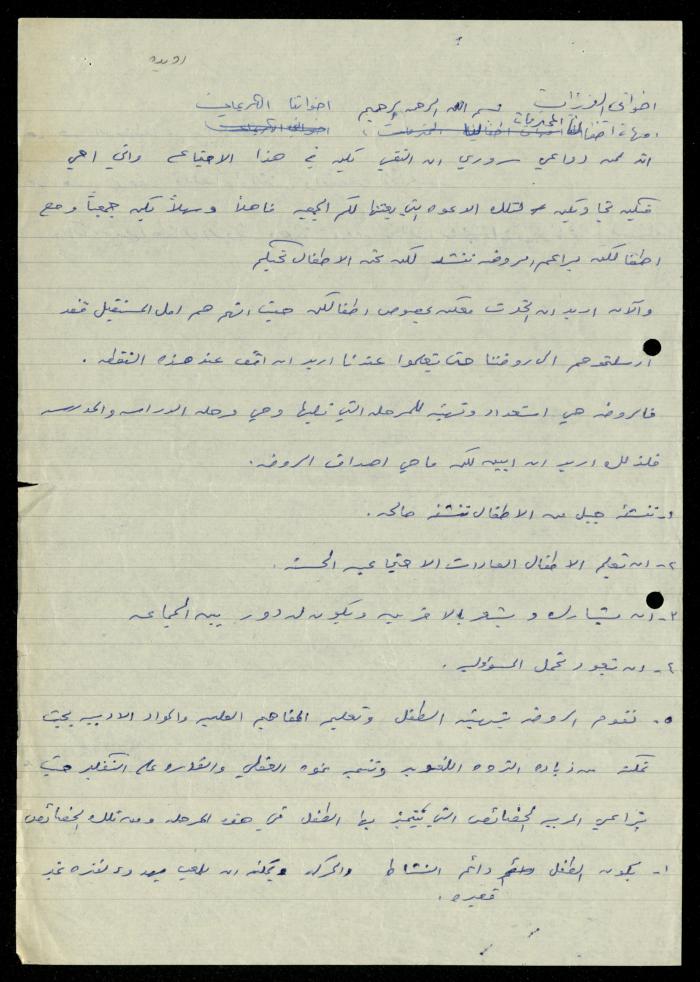 اخواتي العزيزات بسم الله الرحمن الرحيم اخواتنا
امهات اطفالنا المحترمات
انه لمن دواعي سروري ان التقي بكن في هذا الاجتماع واني احيي
فيكن تجاوبكن لتلك الدعوه التي بعثتها لكم الجمعيه فأهلاً وسهلاً بكن جميعاً ومع
اطفالكن براعم الروضه ننشد لكن نحن الاطفال نحيكم
والآن اريد ان اتحدث معكن بخصوص اطفالكن حيث انهم هم امل المستقبل فقد
ارسلتموهم الى روضتنا حتى يتعلموا عندنا اريد ان اقف عند هذه النقطه .
فالروضه هي استعداد وتهيئه للمرحله التي تليها وهي مرحله الدراسه والمدرسه
فلذلك اريد ان ابين لكن ما هي اهداف الروضه .
١- تنشئة جيل من الاطفال تنشئه صالحه .
٢- ان تعليم الاطفال العادات الاجتماعيه الحسنه .
٣- ان يشارك ويشعر بالاخرين ويكون له دور بين الجماعه
٤- ان تعود تحمل المسؤوليه .
٥- تقوم الروضه بتهيئه الطفل وتعليم المفاهيم العلميه والمواد الادبيه بحيث
تمكنه من زياده الثروه اللغويه وتنميه نموه العقلي والقدره على التفكير حيث
تراعي المربيه الخصائص التي يتميز بها الطفل في هذه المرحله ومن تلك الخصائص
١- يكون الطفل دائم النشاط والحركه ويمكنه ان يلعب بهدوء لفتره غير
قصيره .